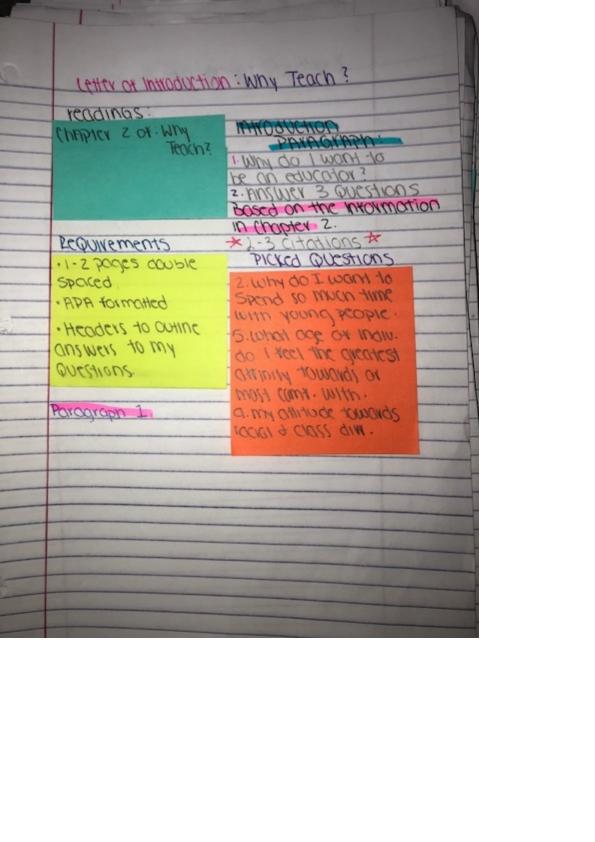 Letter of Introduction: Why Teach?
readings:
Chapter 2 of: Why
Teach?
Introduction
Paragraph:
1. Why do I want to
be an educator?
2. Answer 3 Questions
Based on the information
in Chapter 2.
☆ 2-3 citations ☆
Requirements
• 1-2 pages double
spaced
• APA formatted
• Headers to outline
answers to my
Questions.
Picked Questions
2. Why do I want to
spend so much time
with young people.
5. What age or indiv.
do I feel the greatest
affinity towards or
most comf. with.
9. my attitude towards
racial & class diff.
Paragraph 1